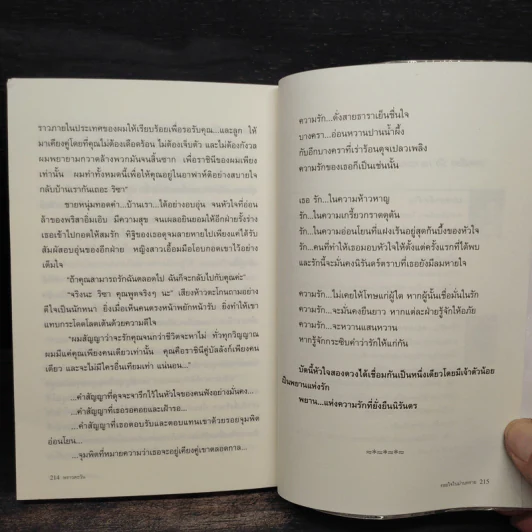 ราวภายในประเทศของผมให้เรียบร้อยเพื่อรอรับคุณ...และลูก ให้
มาเคียงคู่โดยที่คุณไม่ต้องเดือดร้อน ไม่ต้องเจ็บตัว และไม่ต้องกังวล
ผมพยายามกวาดล้างพวกมันจนสิ้นซาก เพื่อราชินีของผมเพียง
เท่านั้น ผมทำทั้งหมดนี้เพื่อให้คุณอยู่ในอาฟาห์ดีอย่างสบายใจ
กลับบ้านเรากันเถอะ ริซา”
ชายหนุ่มทอดคำ...บ้านเรา...ได้อย่างอบอุ่น จนหัวใจที่อ่อน
ล้าของพริสาอิ่มเอิบ มีความสุข จนเผลอยินยอมให้อีกฝ่ายรั้งร่าง
เธอเข้าไปกอดให้สมรัก ทิฐิของเธอดูจะละลายหายไปเพียงแค่ได้รับ
สัมผัสอบอุ่นของอีกฝ่าย หญิงสาวเอื้อมมือโอบกอดเขาไว้อย่าง
เต็มใจ
“ถ้าคุณสามารถรักฉันตลอดไป ฉันก็จะกลับไปกับคุณค่ะ”
“จริงนะ ริซา คุณพูดจริงๆ นะ” เสียงห้าวตะโกนถามอย่าง
ดีใจเป็นนักหนา ยิ่งเมื่อเห็นคนตรงหน้าพยักหน้ารับ ยิ่งทำให้เขา
แทบกระโดดโลดเต้นด้วยความดีใจ
“ผมสัญญาว่าจะรักคุณจนกว่าชีวิตจะหาไม่ ทั่วทุกวิญญาณ
ผมมีแค่คุณเพียงคนเดียวเท่านั้น คุณคือราชินีคู่บัลลังก์เพียงคน
เดียว และจะไม่มีใครอื่นเทียมเท่า แน่นอน...”
...คำสัญญาที่ดุจจะจารึกไว้ในหัวใจของคนฟังอย่างมั่นคง...
...คำสัญญาที่เธอรอคอยและเฝ้ารอ...
...คำสัญญาที่เธอตอบรับและตอบแทนเขาด้วยรอยจุมพิต
อ่อนโยน...
...จุมพิตที่หมายความว่าเธอจะอยู่เคียงคู่เขาตลอดกาล...
214
ความรัก...ดั่งสายธาราเย็นชื่นใจ
บางครา...อ่อนหวานปานน้ำผึ้ง
กับอีกบางคราที่เร่าร้อนดุจเปลวเพลิง
ความรักของเธอก็เป็นเช่นนั้น
เธอ รัก...ในความห้าวหาญ
รัก...ในความเกรี้ยวกราดดุดัน
รัก...ในความอ่อนโยนที่แฝงเร้นอยู่สุดก้นบึ้งของหัวใจ
รัก...คนที่ทำให้เธอมอบหัวใจให้ตั้งแต่ครั้งแรกที่ได้พบ
และรักนี้จะมั่นคงนิรันดร์ตราบที่เธอยังมีลมหายใจ
ความรัก...ไม่เคยให้โทษแก่ผู้ใด หากผู้นั้นเชื่อมั่นในรัก
ความรัก...จะมั่นคงยืนยาว หากแต่ละฝ่ายรู้จักให้อภัย
ความรัก...จะหวานแสนหวาน
หากรู้จักกระซิบคำว่ารักให้แก่กัน
บัดนี้หัวใจสองดวงได้เชื่อมกันเป็นหนึ่งเดียวโดยมีเจ้าตัวน้อย
เป็นพยานแห่งรัก
พยาน...แห่งความรักที่ยั่งยืนนิรันดร
215